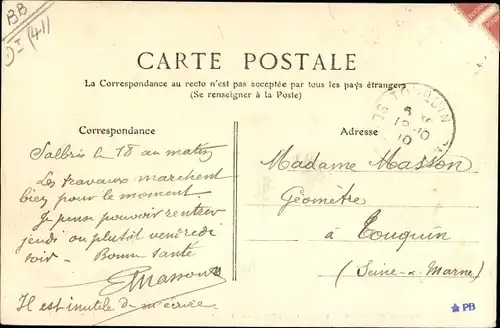 BB
DI (41)
CARTE POSTALE
La Correspondance au recto n'est pas acceptée par tous les pays étrangers
(Se renseigner à la Poste)
Correspondance
Salbris le 18 au matin
Les travaux marchent
bien pour le moment.
Je pense pouvoir rentrer
jeudi ou plutôt vendredi
soir - Bonne santé
EMasson
Il est inutile de m'écrire
Adresse
TOUQUIN
10
Madame Masson
Géomètre
à Touquin
(Seine-&-Marne)
PB